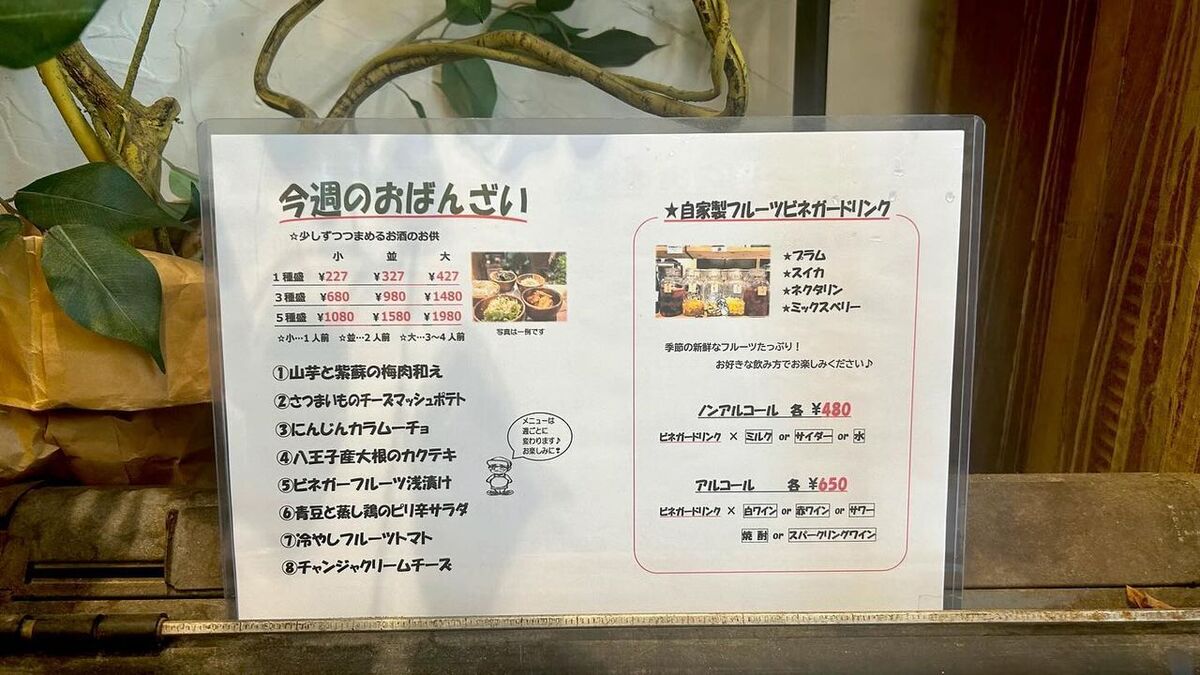 今週のおばんざい
☆少しずつつまめるお酒のお供
小 並 大
1種盛 ¥227 ¥327 ¥427
3種盛 ¥680 ¥980 ¥1480
5種盛 ¥1080 ¥1580 ¥1980
☆小…1人前 ☆並…2人前 ☆大…3～4人前
写真は一例です
①山芋と紫蘇の梅肉和え
②さつまいものチーズマッシュポテト
③にんじんカラムーチョ
④八王子産大根のカクテキ
⑤ビネガーフルーツ浅漬け
⑥青豆と蒸し鶏のピリ辛サラダ
⑦冷やしフルーツトマト
⑧チャンジャクリームチーズ
メニューは
週ごとに
変わります♪
お楽しみに!
★自家製フルーツビネガードリンク
★プラム
★スイカ
★ネクタリン
★ミックスベリー
季節の新鮮なフルーツたっぷり！
お好きな飲み方でお楽しみください♪
ノンアルコール 各 ¥480
ビネガードリンク × ミルク or サイダー or 水
アルコール 各 ¥650
ビネガードリンク × 白ワイン or 赤ワイン or サワー
焼酎 or スパークリングワイン